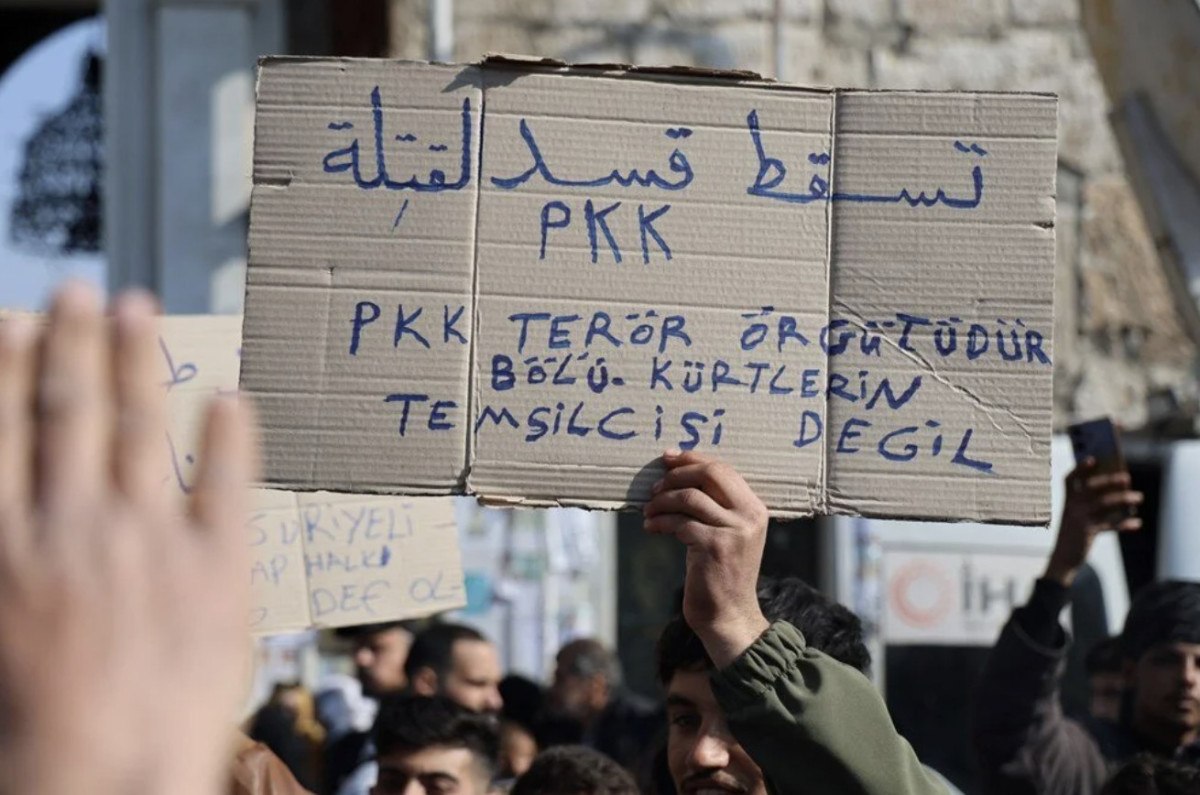 تسقط قسد لقتلة
PKK
PKK TERÖR ÖRGÜTÜDÜR
BÖLÜ. KÜRTLERİN
TEMŞİLCİŞİ DEGİL
SURİYELİ
AP HALKI
DEF OL-
İH